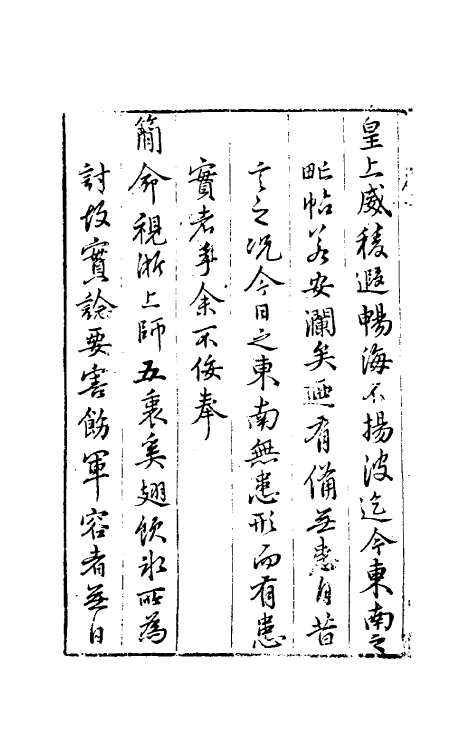 皇上威稜遐暢海不揚波迄今東南之
毗帖若安瀾矣廼有備無患自昔
言之況今日之東南無患形而有患
實者乎余不佞奉
簡命視浙上師五裹奚翅飲冰所為
討故實諗要害飭軍容者無日